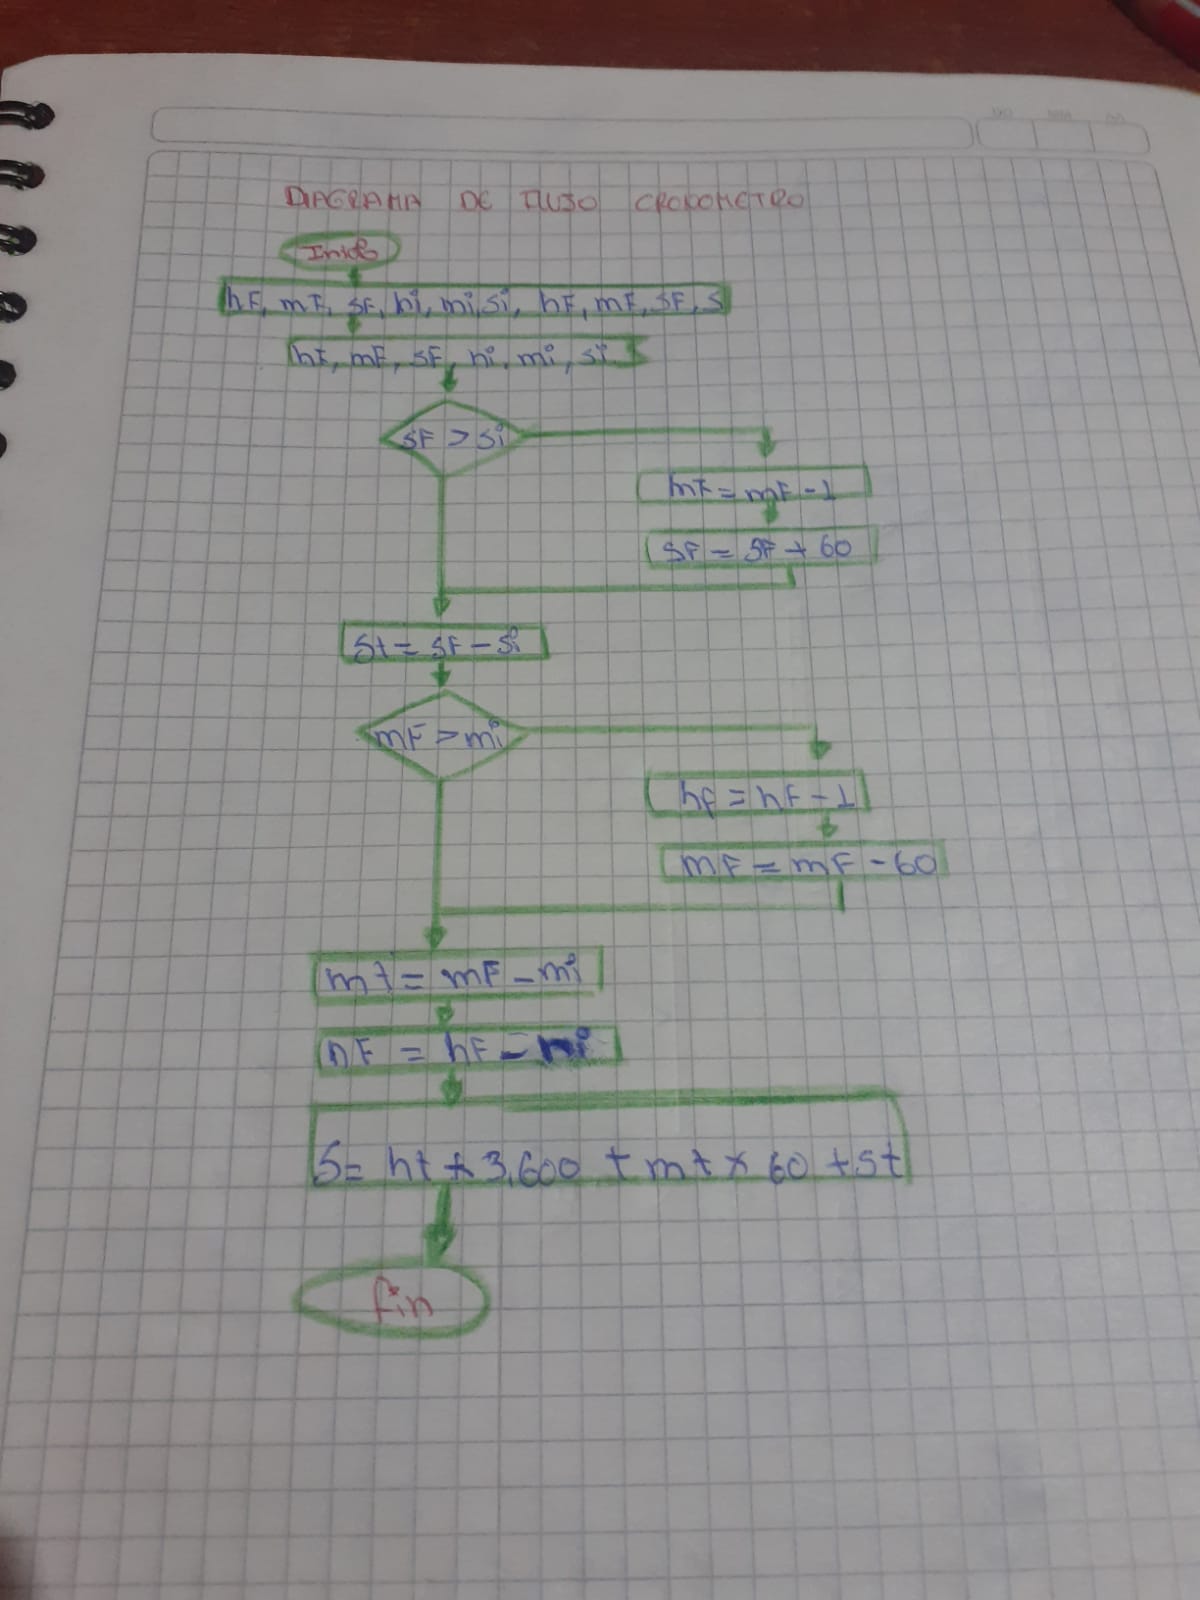 DIAGRAMA DE FLUJO CRONOMETRO
Inicio
hF, mF, SF, hi, mi, si, hF, mF, SF, S
hF, mF, SF, hi, mi, si
SF > Si
mF = mF - 1
SF = SF + 60
St = SF - Si
mF > mi
hF = hF - 1
mF = mF - 60
mt = mF - mi
hF = hF - hi
S= ht * 3,600 + mt * 60 + st
fin